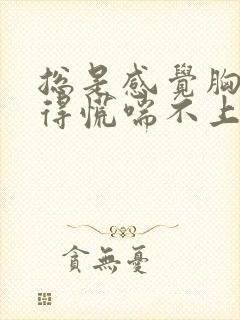 總是感覺胸
得慌喘不上
貪無憂